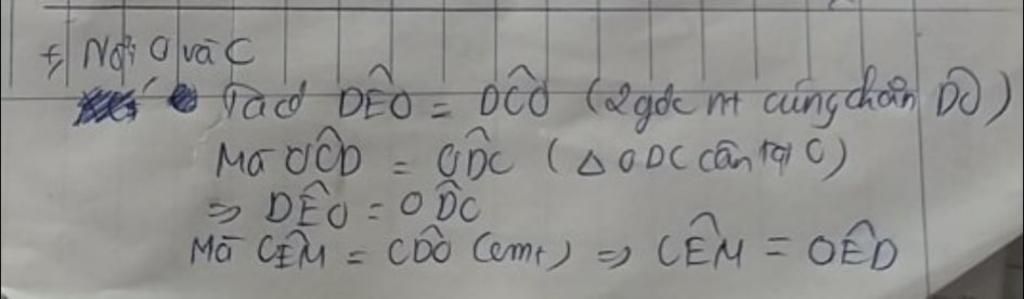 f, Nối O và C
Ta có DÊO = DĈO (2 góc nt cùng chắn DO)
Mà OĈD = OD̂C (△ ODC cân tại O)
=> DÊO = OD̂C
Mà CÊM = CD̂O (cmt) => CÊM = OÊD